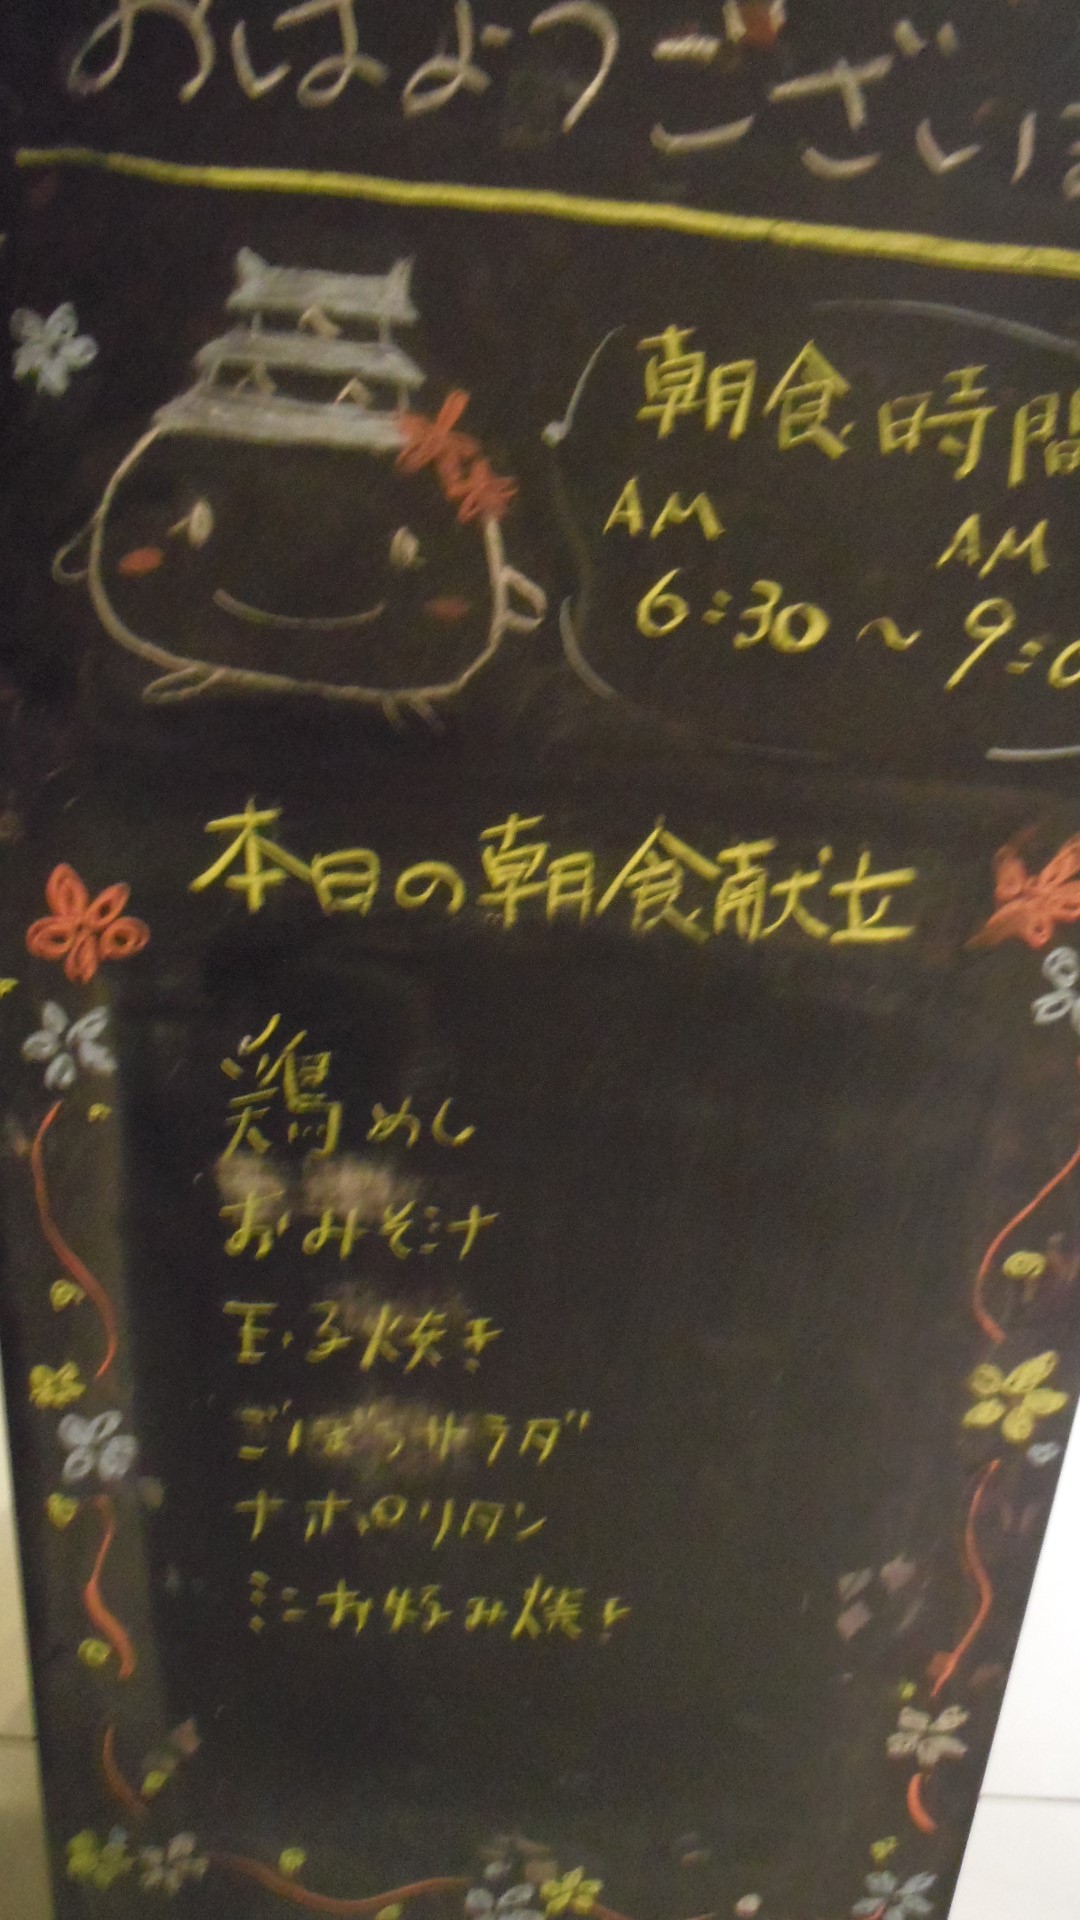 おはようございま
朝食時間
AM AM
6:30～9:0
本日の朝食献立
鶏めし
おみそ汁
玉子焼き
ごぼうサラダ
ナポリタン
ミニお好み焼き